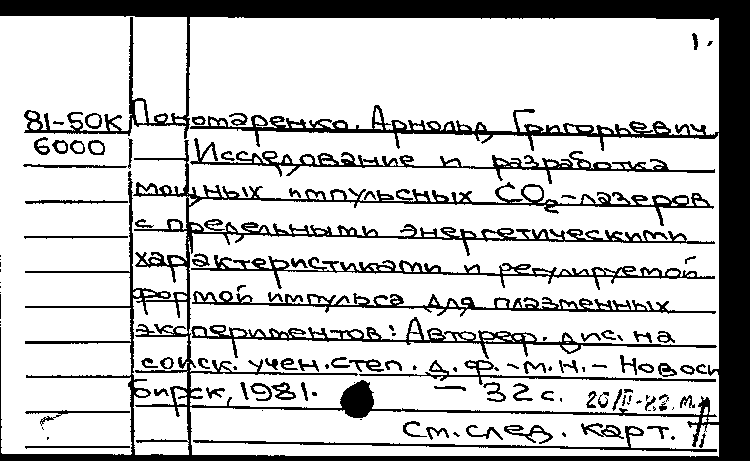 1.
81-50К Пономаренко, Арнольд Григорьевич
6000 Исследование и разработка
мощных импульсных CO₂-лазеров
с предельными энергетическими
характеристиками и регулируемой
формой импульса для плазменных
экспериментов: Автореф. дис. на
соиск. учен. степ. д. ф.-м. н. - Новоси
бирск, 1981. - 32 с. 20/II-82.
См. след. карт.